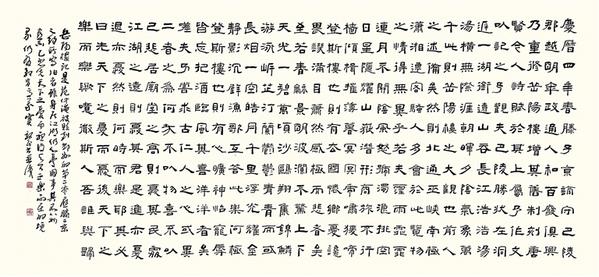 慶曆四年春滕子京謫守巴陵
郡越明年政通人和百廢具興
乃重修岳陽樓增其舊制刻唐
賢今人詩賦於其上屬予作文
以記之予觀夫巴陵勝狀在洞
庭一湖銜遠山吞長江浩浩湯
湯橫無際涯朝暉夕陰氣象萬
千此則岳陽樓之大觀也前人
之述備矣然則北通巫峽南極
瀟湘遷客騷人多會於此覽物
之情得無異乎若夫霪雨霏霏
連月不開陰風怒號濁浪排空
日星隱耀山岳潛形商旅不行
檣傾楫摧薄暮冥冥虎嘯猿啼
登斯樓也則有去國懷鄉憂讒
畏譏滿目蕭然感極而悲者矣
至若春和景明波瀾不驚上下
天光一碧萬頃沙鷗翔集錦鱗
游泳岸芷汀蘭郁郁青青而或
長煙一空皓月千里浮光躍金
靜影沉璧漁歌互答此樂何極
登斯樓也則有心曠神怡寵辱
皆忘把酒臨風其喜洋洋者矣
嗟夫予嘗求古仁人之心或異
二者之為何哉不以物喜不以
己悲居廟堂之高則憂其民處
江湖之遠則憂其君是進亦憂
退亦憂然則何時而樂耶其必
曰先天下之憂而憂後天下之
樂而樂歟噫微斯人吾誰與歸
岳陽樓記是范仲淹